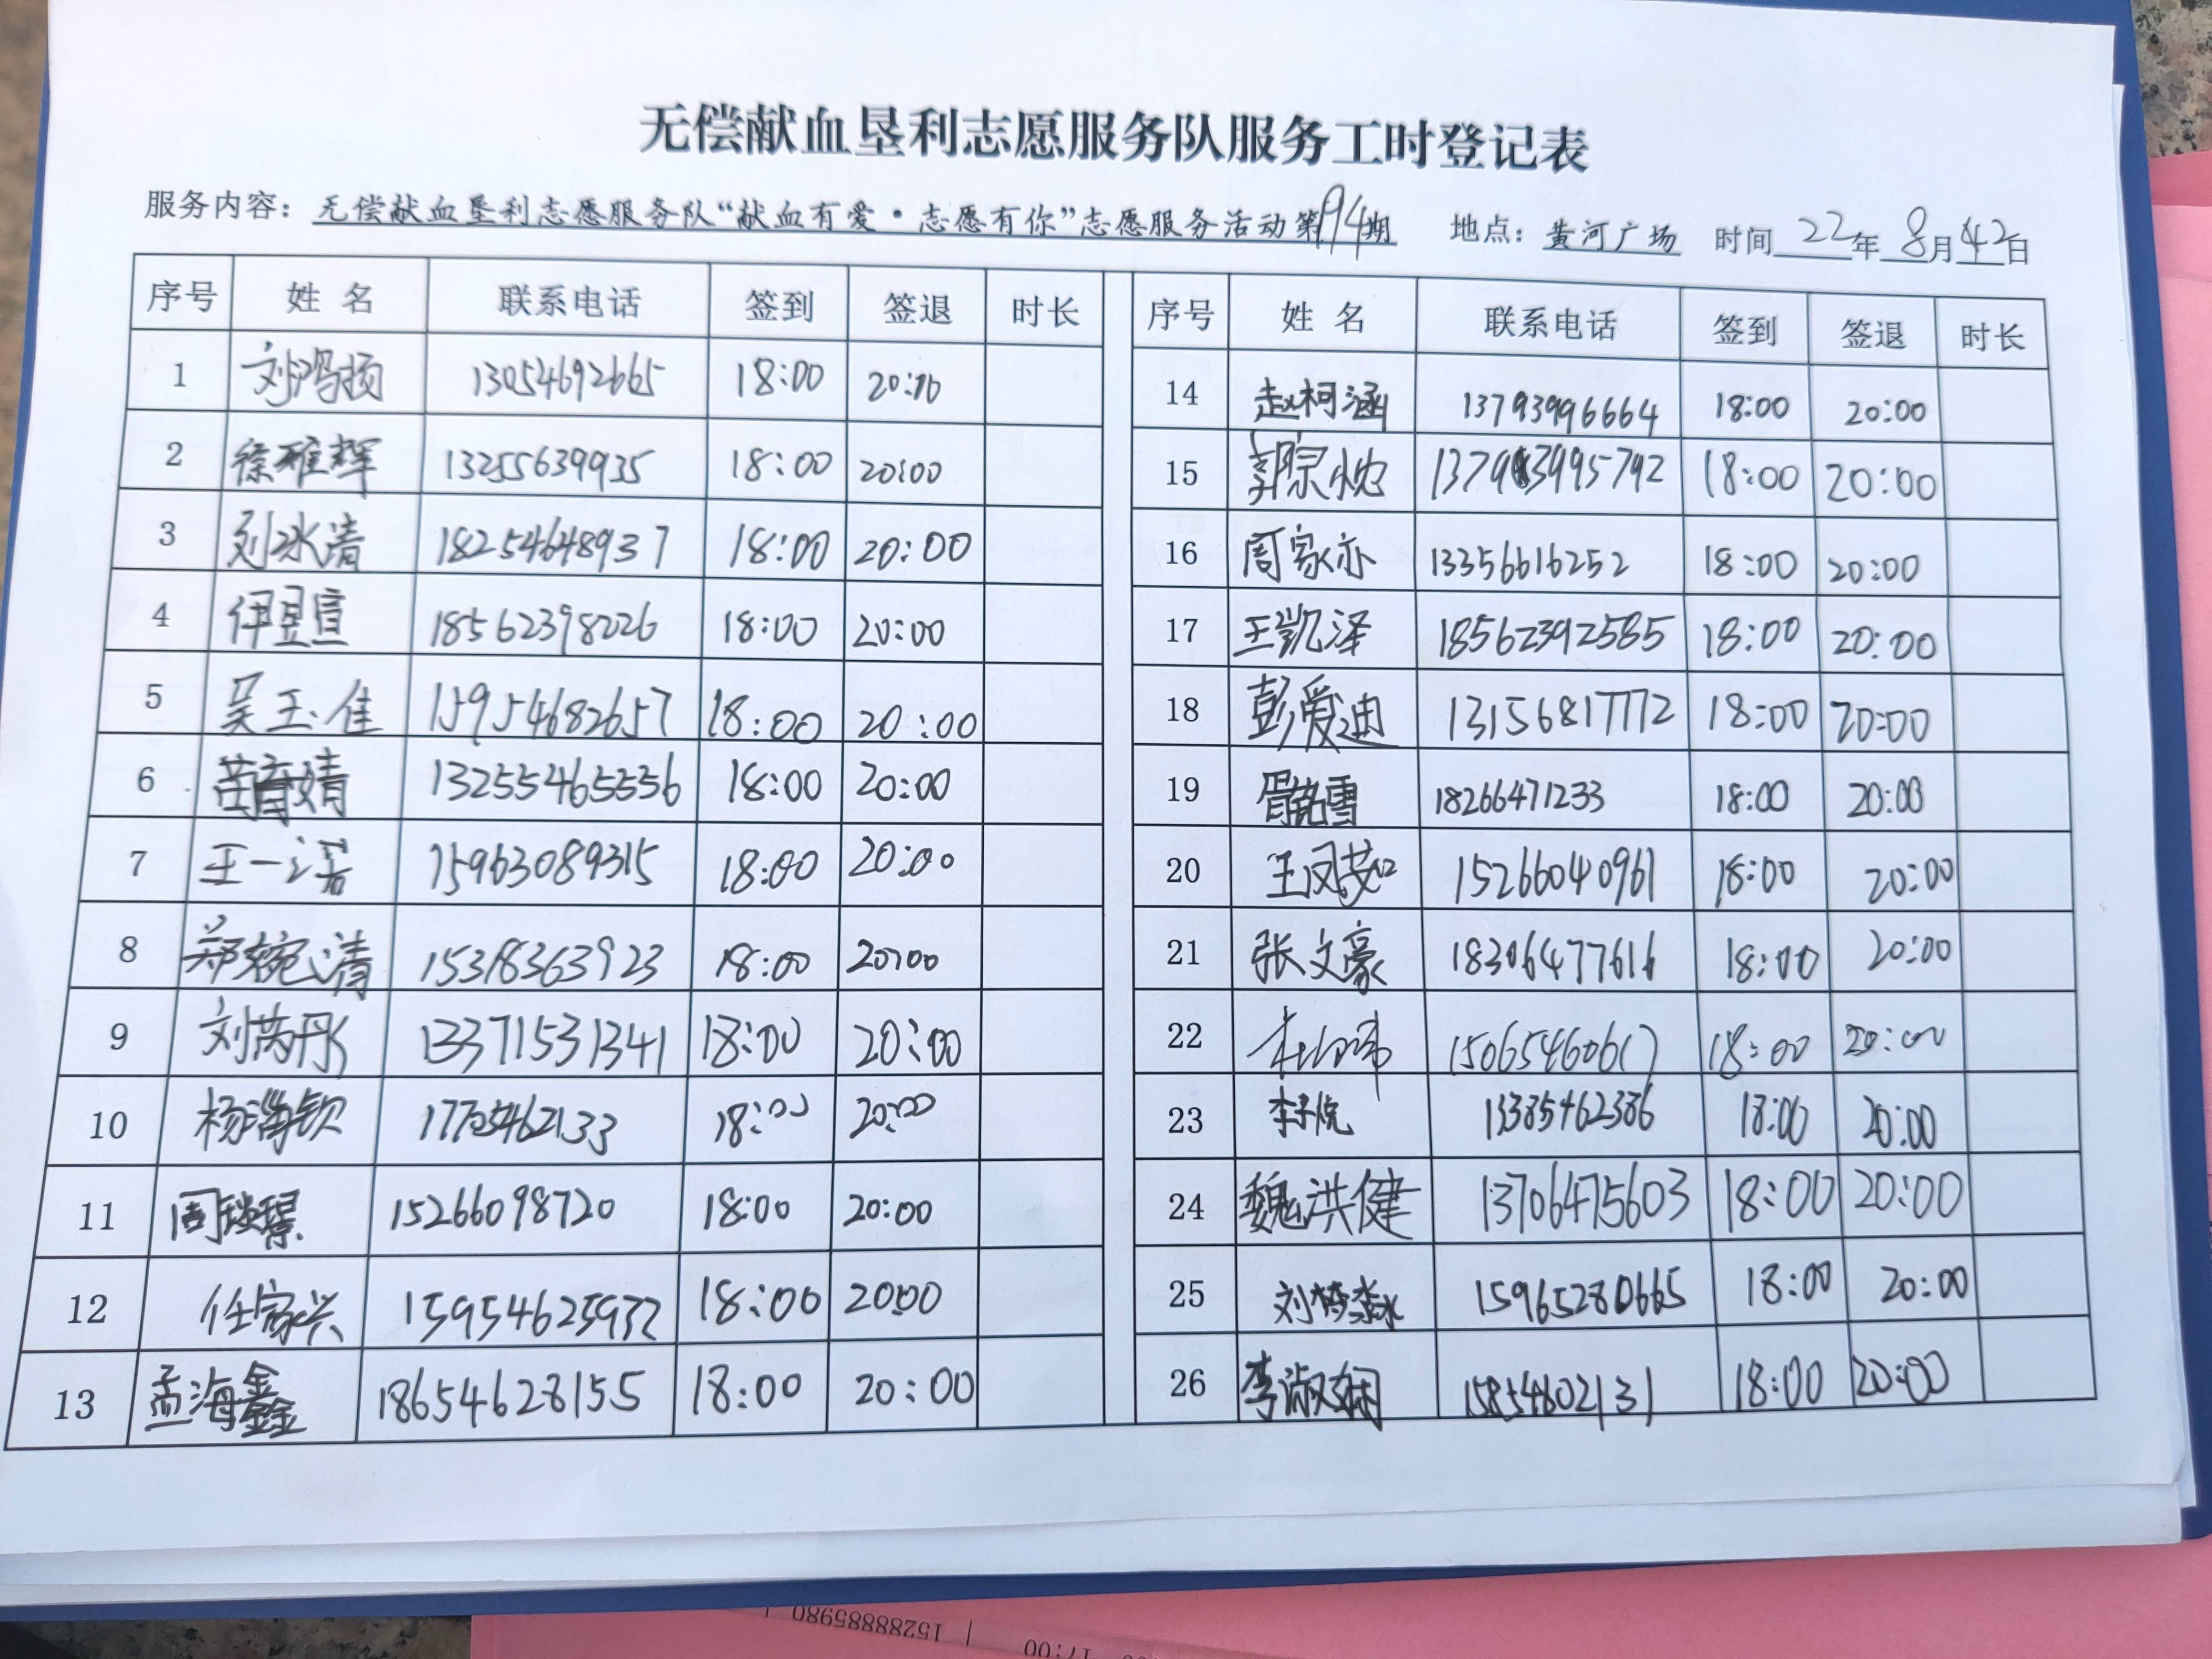 无偿献血垦利志愿服务队服务工时登记表
服务内容：无偿献血垦利志愿服务队“献血有爱·志愿有你”志愿服务活动第94期 地点：黄河广场 时间 22年 8月 日
序号 姓名 联系电话 签到 签退 时长
1 刘鸿扬 13054692665 18:00 20:10
2 徐雅辉 13255639935 18:00 20:00
3 刘冰清 18254648937 18:00 20:00
4 伊昱宣 18562398226 18:00 20:00
5 吴玉佳 15954682657 18:00 20:00
6 苦育婧 13255465556 18:00 20:00
7 王一诺 15963089315 18:00 20:00
8 郑婉清 15318363923 18:00 20:00
9 刘芮彤 13371531341 18:00 20:00
10 杨海钦 18:00 20:00
11 周 15266098720 18:00 20:00
12 任家兴 15954625937 18:00 20:00
13 孟海鑫 18654628155 18:00 20:00
序号 姓名 联系电话 签到 签退 时长
14 赵柯涵 13793996664 18:00 20:00
15 郭宗忱 13793995792 18:00 20:00
16 周家亦 13356616252 18:00 20:00
17 王凯泽 18562392585 18:00 20:00
18 彭爱迪 13156817772 18:00 20:00
19 胥铭雪 18266471233 18:00 20:00
20 王凤茹 15266040961 18:00 20:00
21 张文豪 18306477616 18:00 20:00
22 15065460617 18:00 20:00
23 李子悦 13385462386 18:00 20:00
24 魏洪健 13706475603 18:00 20:00
25 刘梦淼 15965280665 18:00 20:00
26 李淑娴 15854602131 18:00 20:00
15288885980
17:00